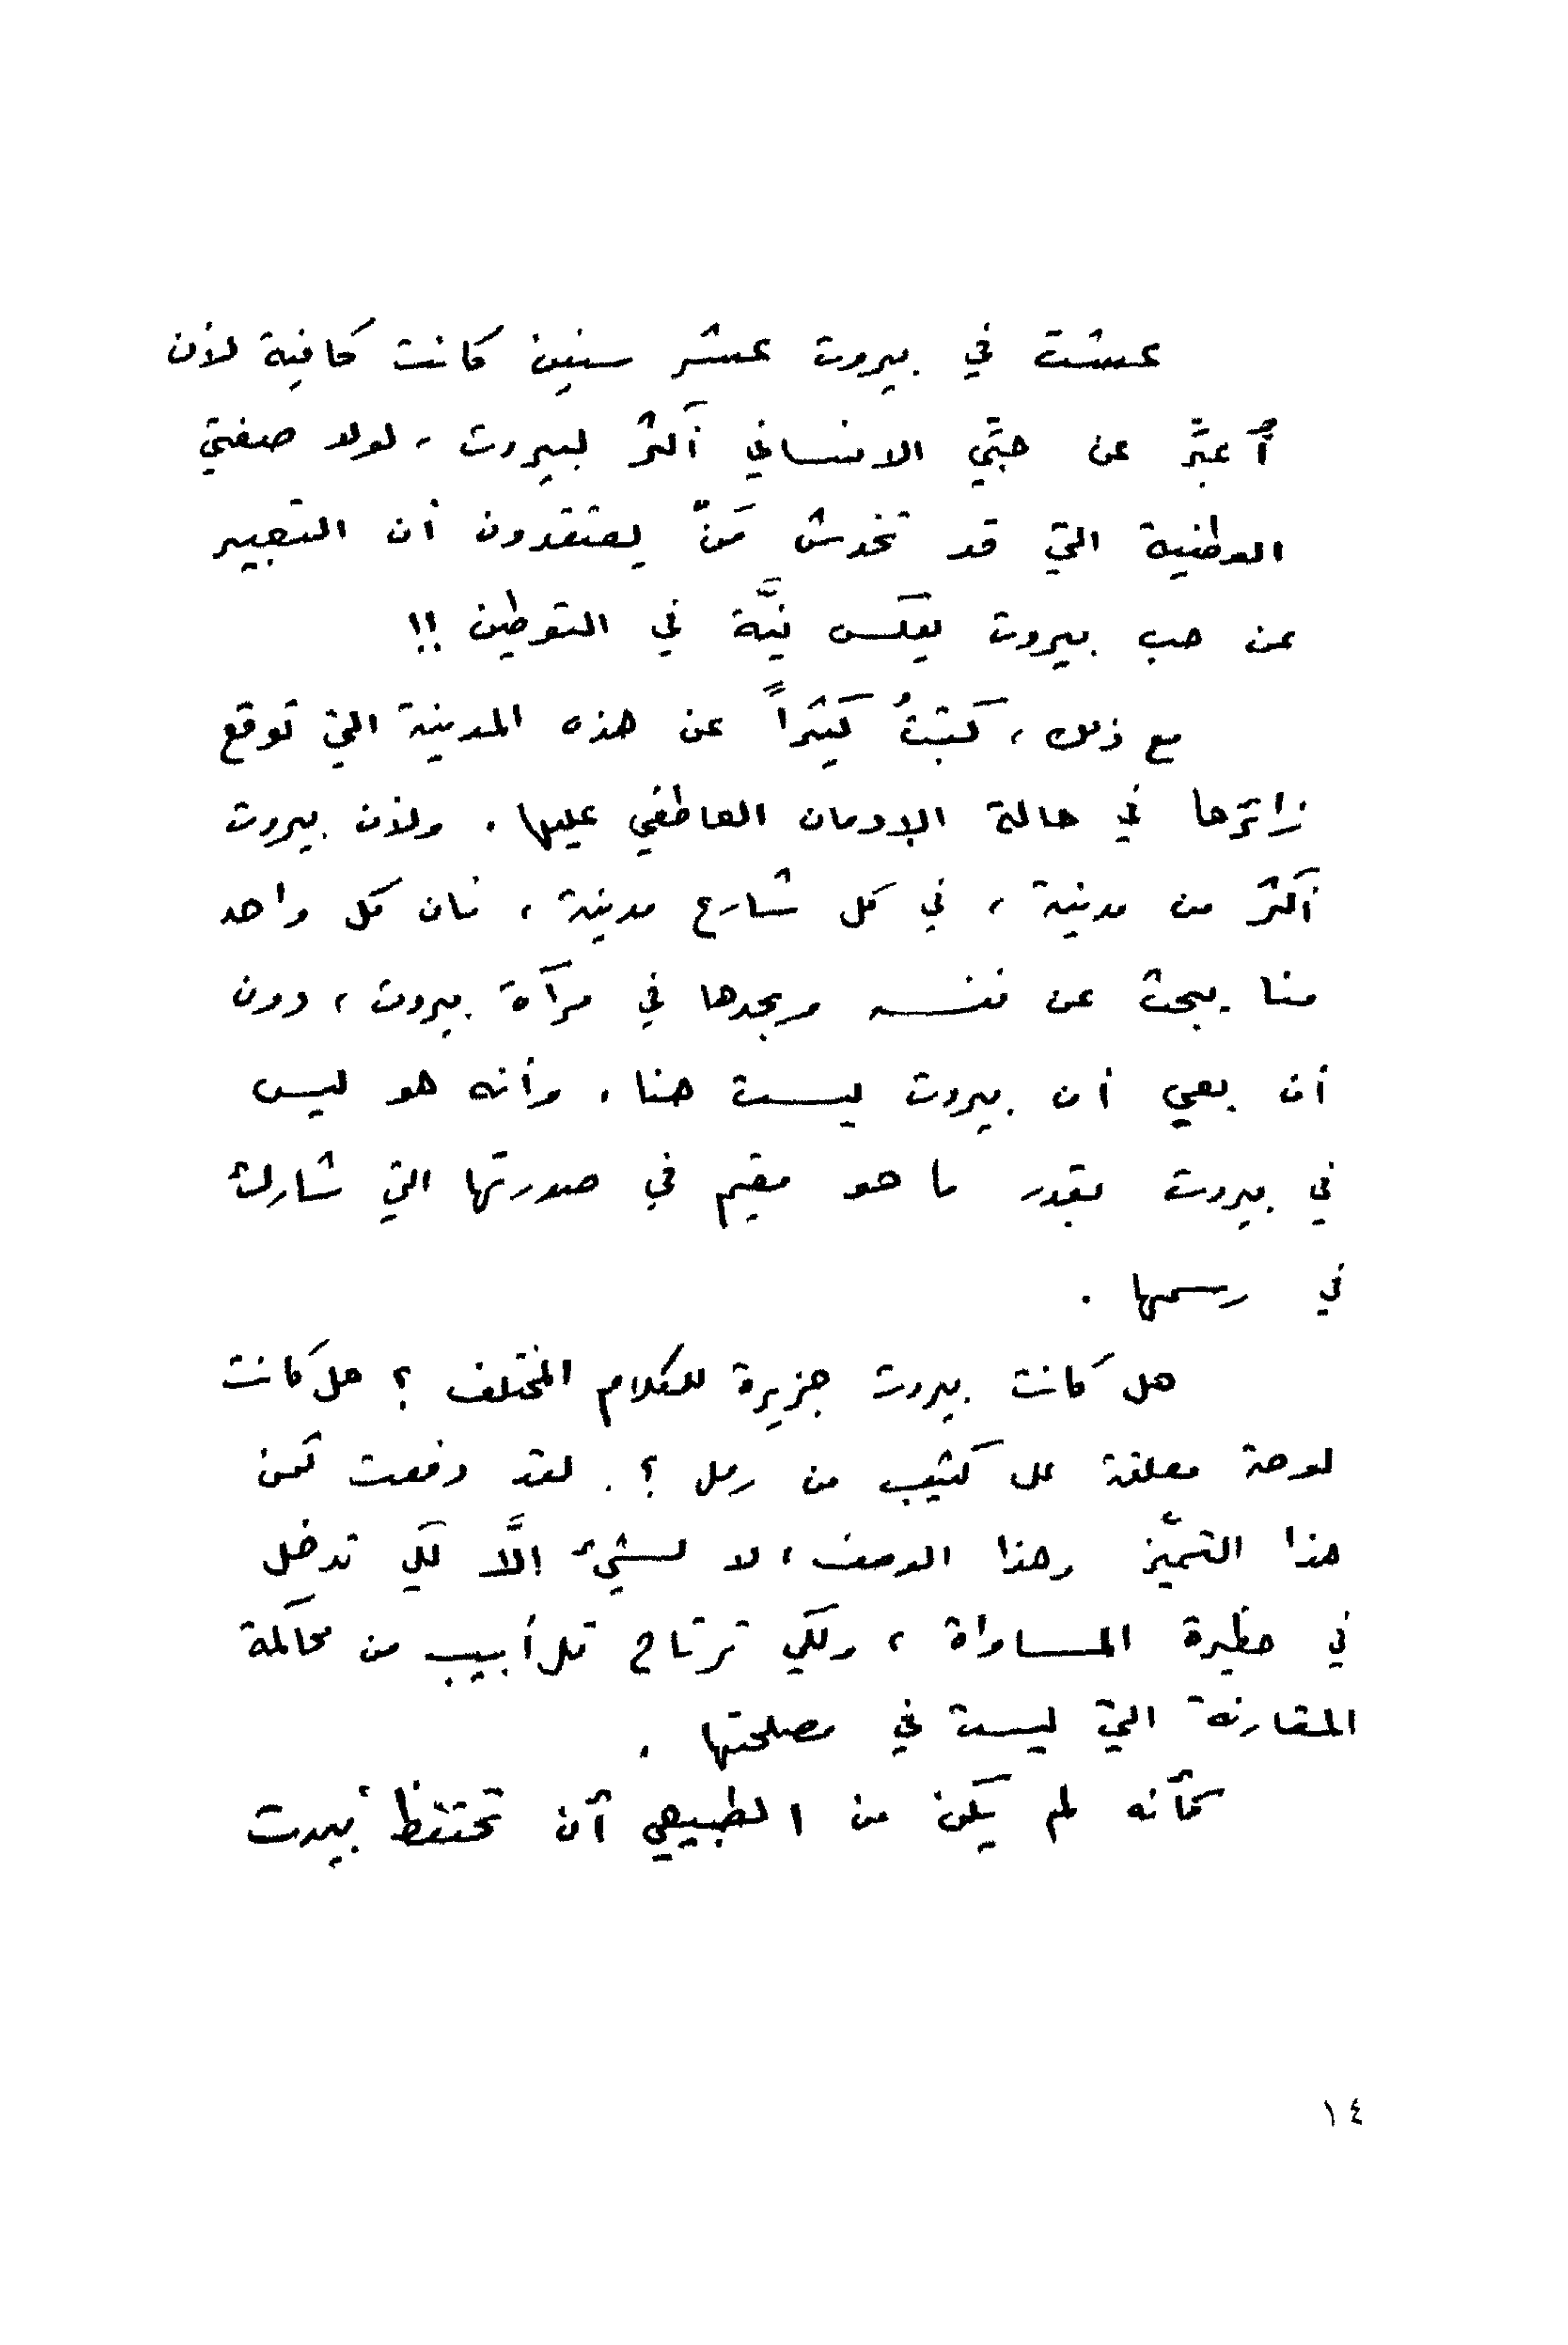 عشت في بيروت عشر سنين كانت كافية لأن
أُعبِّر عن حبّي الانساني أكثر لبيروت، لولا صفتي
الوطنية التي قد تخدش مَنْ يعتقدون أن التعبير
عن حب بيروت يعكس نيَّة في التوطين !!
مع ذلك، كتبتُ كثيراً عن هذه المدينة التي توقع
زائرها في حالة الإدمان العاطفي عليها. ولأن بيروت
أكثر من مدينة، في كل شارع مدينة، فان كل واحد
منا يبحث عن نفسه ويجدها في مرآة بيروت، دون
أن يعي أن بيروت ليست هنا، وأنه هو ليس
في بيروت بقدر ما هو مقيم في صورتها التي شارك
في رسمها.
هل كانت بيروت جزيرة للكلام المختلف؟ هل كانت
لوحة معلقة على كثيب من رمل؟. لقد دفعت ثمن
هذا التميّز وهذا الوصف، لا لشيء إلَّا لكي تدخل
في حظيرة المساواة، ولكي ترتاح تل أبيب من محاكمة
المقارنة التي ليست في مصلحتها.
كأنه لم يكن من الطبيعي أن تحتفظ بيروت
١٤